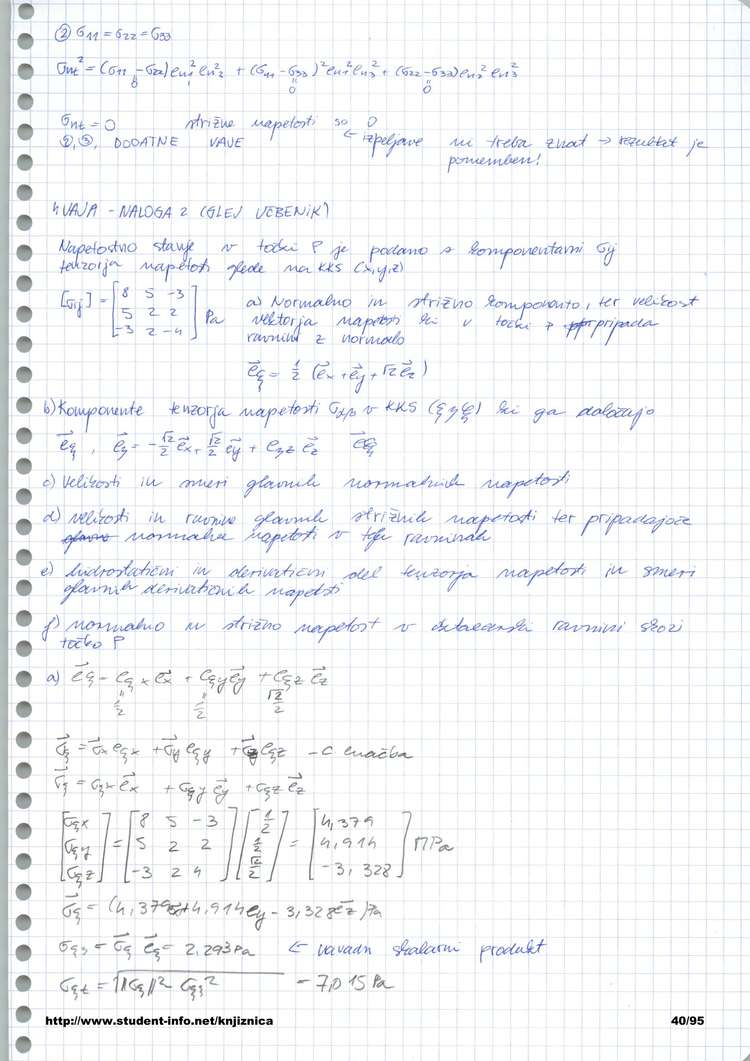 ② σ11 = σ22 = σ33
σnt² = (σ11 - σ22) en1² en2² + (σ11 - σ33)² en1² en3² + (σ22 - σ33) en2² en3²
0 0 0
σnt = 0 strižne napetosti so 0
②, ③, DODATNE VAJE ← izpeljave ni treba znat → rezultat je
pomemben!
4 VAJA - NALOGA 2 (GLEJ UČBENIK)
Napetostno stanje v točki P je podano s komponentami σij
tenzorja napetosti glede na KKS (x,y,z)
[σij] = [8 5 -3
5 2 2
-3 2 -4] Pa
a) Normalno in strižno komponento, ter velikost
vektorja napetosti ki v točki P pripada
ravnini z normalo
eξ = 1/2 (ex + ey + √2 ez)
b) Komponente tenzorja napetosti σαβ v KKS (ξ η ζ) ki ga določajo
eξ, eη = -√2/2 ex + √2/2 ey + eηz ez eζ
c) Velikosti in smeri glavnih normalnih napetosti
d) velikosti in ravnine glavnih strižnih napetosti ter pripadajoče
normalne napetosti v teh ravninah
e) hidrostatični in deviatični del tenzorja napetosti in smeri
glavnih deviatičnih napetosti
f) normalno in strižno napetost v oktaedrski ravnini skozi
točko P
a) eξ = eξx ex + eξy ey + eξz ez
1/2 1/2 √2/2
σξ = σx eξx + σy eξy + σz eξz - C enačba
σξ = σξx ex + σξy ey + σξz ez
[σξx
σξy
σξz] = [8 5 -3
5 2 2
-3 2 4] [1/2
1/2
√2/2] = [4,379
4,914
-3,328] MPa
σξ = (4,379ex + 4,914ey - 3,328ez) Pa
σξξ = σξ eξ = 2,293 Pa ← navadn skalarni produkt
σξt = √||σξ||² σξξ² = 7,015 Pa
http://www.student-info.net/knjiznica 40/95